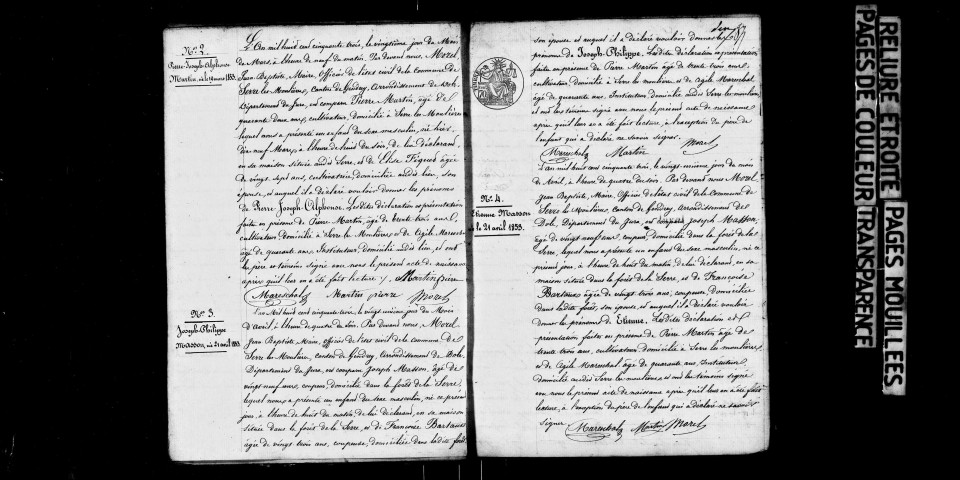 No. 2.
Pierre-Joseph-Alphonse
Martin, né le 19 mars 1853.
L'An mil huit cent cinquante trois, le vingtième jour du Mois
de Mars, à l'heure de neuf du matin. Par devant nous, Morel
Jean Baptiste, Maire, Officier de l'état civil de la Commune de
Serre les Moulières, Canton de Gendrey, Arrondissement de Dole,
Département du Jura, est comparu Pierre Martin, âgé de
quarante deux ans, cultivateur, domicilié à Serre les Moulières
lequel nous a présenté un enfant du sexe masculin, né hier
dix neuf Mars, à l'heure de huit du soir, de lui déclarant,
en sa maison située audit Serre, et de Elise âgée
de vingt sept ans, cultivatrice, domiciliée audit lieu, son
épouse, et auquel il a déclaré vouloir donner les prénoms
de Pierre Joseph Alphonse. Lesdites déclaration et présentation
faite en présence de Pierre Martin, âgé de trente trois ans,
cultivateur domicilié à Serre les Moulières et de Agile Mareschal
âgé de quarante ans, Instituteur, domicilié audit lieu, et ont
les père et témoins signé avec nous le présent acte de naissance
après qu'il leur en a été fait lecture. Martin pierre
Mareschal Martin pierre Morel
No. 3.
Joseph-Philippe
Masson, né 21 avril 1853.
L'an mil huit cent cinquante trois, le vingt unième jour du Mois
d'Avril, à l'heure de quatre du soir. Par devant nous, Morel
Jean Baptiste, Maire, officier de l'état civil de la commune de
Serre les Moulières, canton de Gendrey, Arrondissement de Dole,
Département du Jura, est comparu Joseph Masson, âgé de
vingt neuf ans, coupeur, domicilié dans la forêt de la Serre,
lequel nous a présenté un enfant du sexe masculin, né ce présent
jour, à l'heure de huit du matin, de lui déclarant, en sa maison
située dans la forêt de la Serre, et de Françoise
âgée de vingt trois ans, coupeuse, domiciliée dans ladite forêt,
son épouse et auquel il a déclaré vouloir donner les
prénoms de Joseph-Philippe. Lesdites déclaration et présentation
faite en présence de Pierre Martin âgé de trente trois ans,
cultivateur, domicilié à Serre les moulières, et de Agile Mareschal
âgé de quarante ans, Instituteur, domicilié audit Serre les moulières
et ont les témoins signé avec nous le présent acte de naissance
après qu'il leur en a été fait lecture, à l'exception du père de
l'enfant qui a déclaré ne savoir signer.
Mareschal Martin Morel
No. 4.
Etienne Masson
le 21 avril 1853.
L'an mil huit cent cinquante trois, le vingt-unième jour du mois
d'Avril, à l'heure de quatre du soir. Par devant nous Morel
Jean Baptiste, Maire, Officier de l'état civil de la Commune de
Serre les Moulières, canton de Gendrey, arrondissement de
Dole, Département du Jura, est comparu Joseph Masson,
âgé de vingt neuf ans, coupeur, domicilié dans la forêt de la
Serre, lequel nous a présenté un enfant du sexe masculin, né ce
présent jour, à l'heure de huit du matin, de lui déclarant, en sa
maison située dans la forêt de la Serre, et de Françoise
âgée de vingt trois ans, coupeuse domiciliée
dans ladite forêt, son épouse et auquel il a déclaré vouloir
donner le prénom de Etienne. Lesdites déclaration et
présentation faites en présence de Pierre Martin âgé de
trente trois ans, cultivateur domicilié à Serre les moulières,
et de Agile Mareschal âgé de quarante ans, Instituteur,
domicilié audit Serre les moulières et ont les témoins signé
avec nous le présent acte de naissance après qu'il leur en a été fait
lecture, à l'exception du père de l'enfant qui a déclaré ne savoir
signer
Mareschal Martin Morel
RELIURE ETROITE
PAGES DE COULEUR
PAGES MOUILLEES
TRANSPARENCE